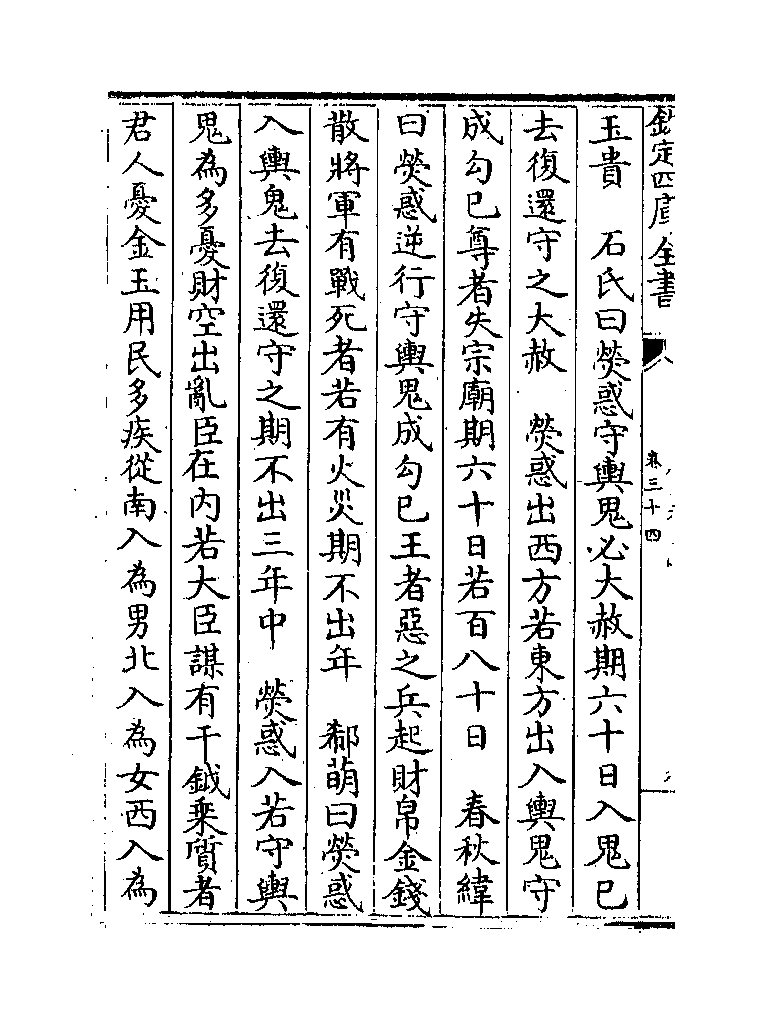 欽定四庫全書
卷三十四
玉貴　石氏曰熒惑守輿鬼必大赦期六十日入鬼已
去復還守之大赦　熒惑出西方若東方出入輿鬼守
成勾已尊者失宗廟期六十日若百八十日　春秋緯
曰熒惑逆行守輿鬼成勾已王者惡之兵起財帛金錢
散將軍有戰死者若有火災期不出年　郗萌曰熒惑
入輿鬼去復還守之期不出三年中　熒惑入若守輿
鬼為多憂財空出亂臣在內若大臣謀有干鉞乘質者
君人憂金玉用民多疾從南入為男北入為女西入為